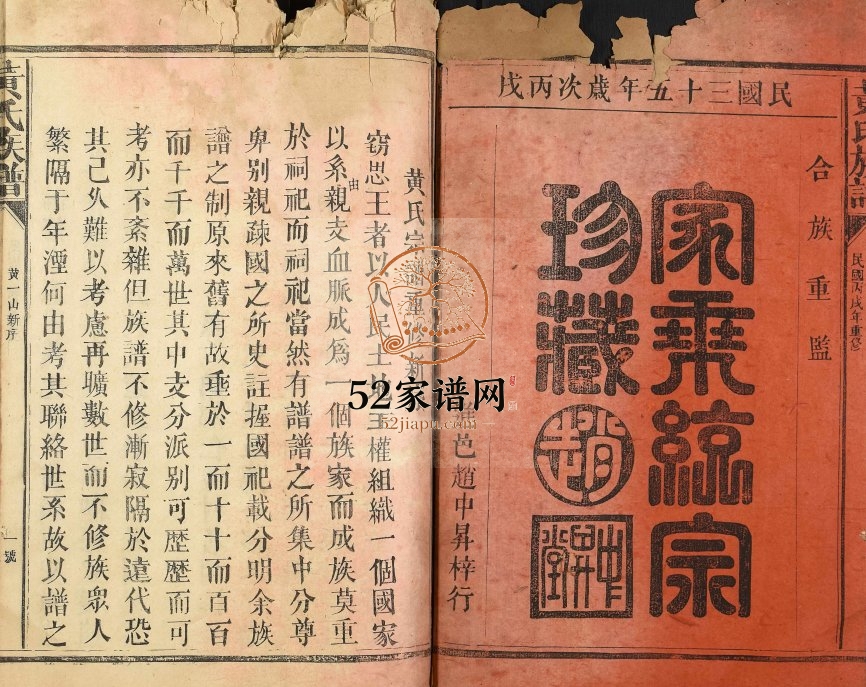 黃氏族譜
民國丙戌年重修
民國三十五年歲次丙戌
合族重監
家乘綜宗
珍藏
趙
邑趙中昇梓行
黃氏宗譜重修新
竊思王者以人民土地主權組織一個國家
以系親由支血脈成為一個族家而成族莫重
於祠祀而祠祀當然有譜譜之所集中分尊
卑別親疎國之所史註握國祀載分明余族
譜之制原來舊有故垂於一而十十而百百
而千千而萬世其中支分派別可歷歷而可
考亦不紊雜但族譜不修漸寂隔於遠代恐
其己久難以考慮再曠數世而不修族眾人
繁隔于年湮何由考其聯絡世系故以譜之
黃氏族譜
黃一山新序
一號
52家谱网
52jiapu.com